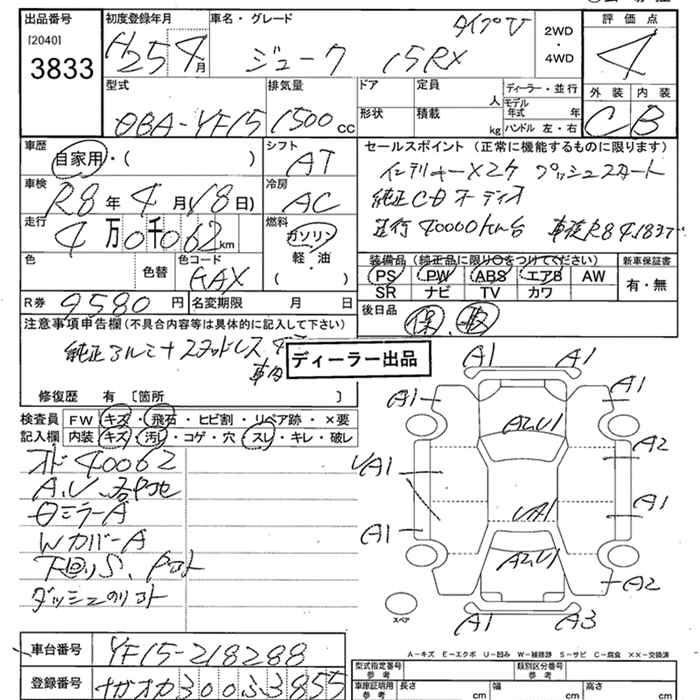 出品番号
[2040]
3833
初度登録年月
H25 4月
車名・グレード
ジューク 15RX
タイプV
2WD
・
4WD
評価点
4
外装 内装
C B
型式
DBA-YF15
排気量
1500 cc
ドア
形状
定員
人
積載
kg
ディーラー・並行
モデル年式 年
ハンドル 左・右
車歴
自家用・( )
シフト
AT
セールスポイント (正常に機能するものに限ります)
インテリキーX2ケ プッシュスタート
純正CDオーディオ
走行40000km台 車検R8 4.18まで
車検
R8年 4月 18日)
冷房
AC
走行
4万0千062km
燃料
ガソリン
軽・油
( )
色
色替
色コード
GAX
装備品 (純正品に限り○をつけてください)
PS PW ABS エアB AW
SR ナビ TV カワ
新車保証書
有・無
R券 9580円
名変期限 月 日
後日品
保 取
注意事項申告欄 (不具合内容等は具体的に記入して下さい)
純正アルミ+スタッドレス
車内
ディーラー出品
修復歴 有 [箇所 ]
検査員
記入欄
FW キズ・飛石・ヒビ割・リペア跡・×要
内装 キズ・汚レ・コゲ・穴・スレ・キレ・破レ
オド40062
A.U
ミラーA
WカバーA
下回りS、
ダッシュのリコト
A1 A1
A1 A1
A2U1
A2
A1
A1
UA1
A1
A2U1
A2
A1 A3
スペア
A-キズ E-エクボ U-凹み W-補修跡 S-サビ C-腐食 ××-交換済
車台番号
YF15-218288
登録番号
ナガオカ300ふ3855
型式指定番号
参考
類別区分番号
参考
車庫証明用
参考
長さ cm 幅 cm 高さ cm